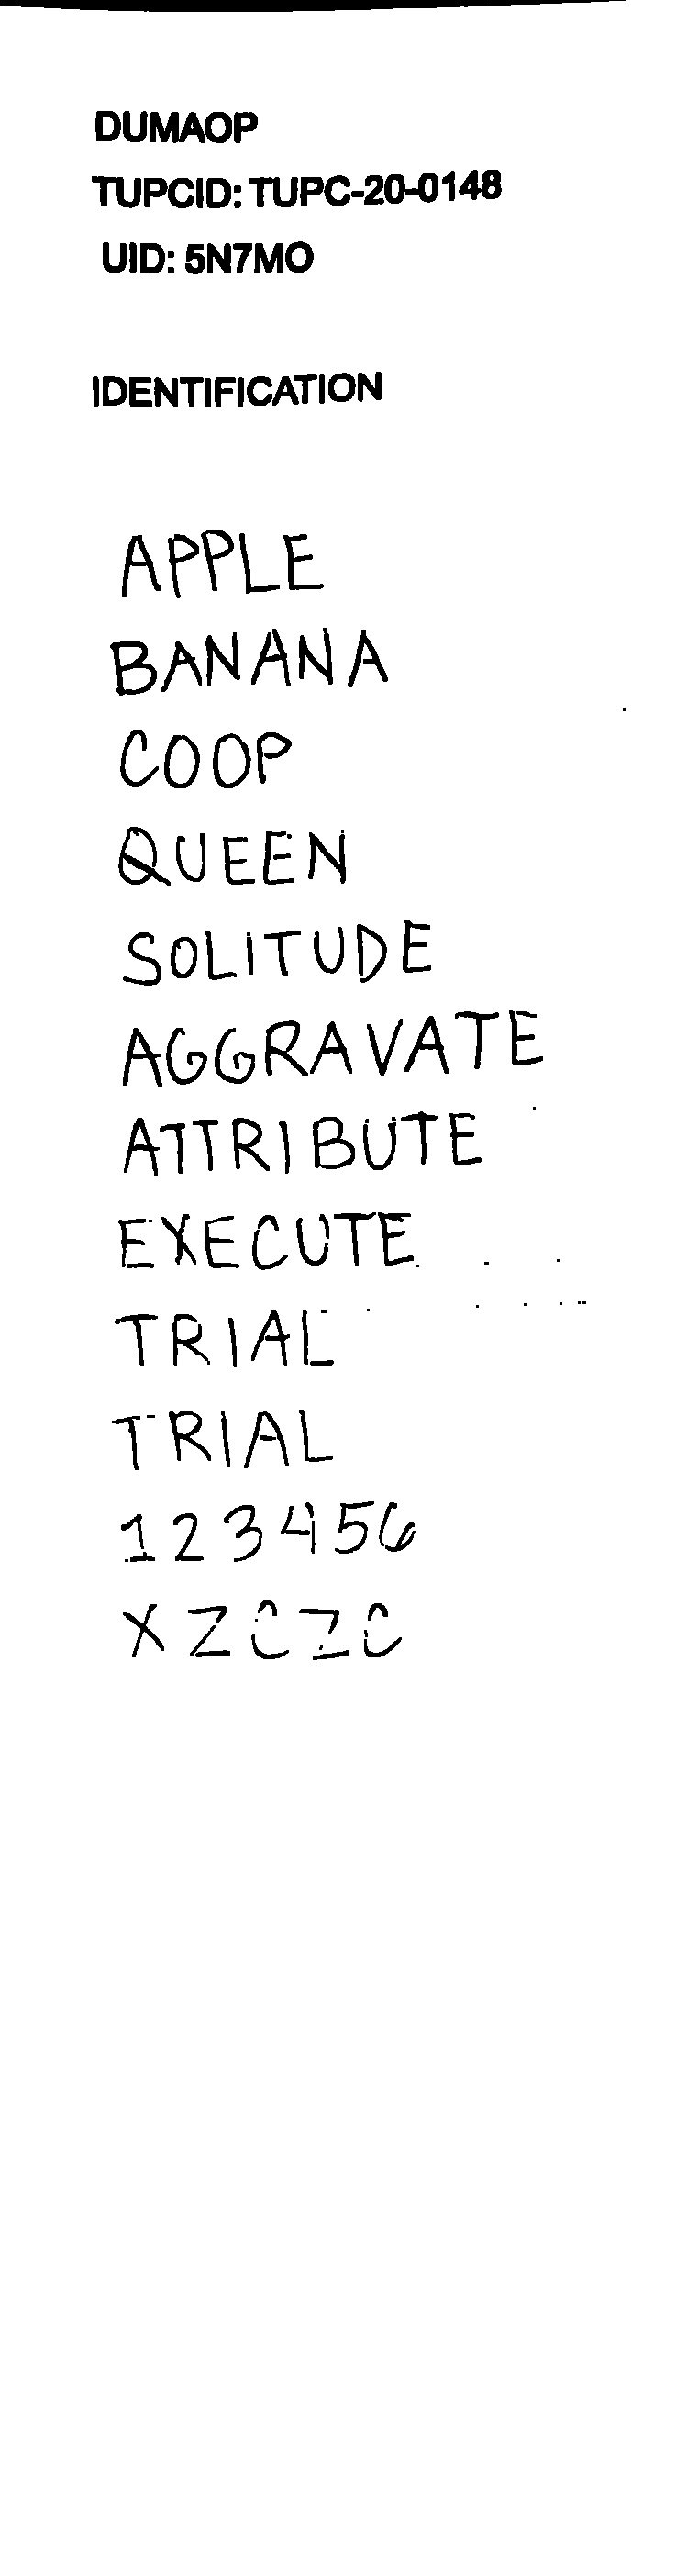 DUMAOP
TUPCID: TUPC-20-0148
UID: 5N7MO
IDENTIFICATION
APPLE
BANANA
COOP
QUEEN
SOLITUDE
AGGRAVATE
ATTRIBUTE
EXECUTE
TRIAL
TRIAL
123456
XZCZC